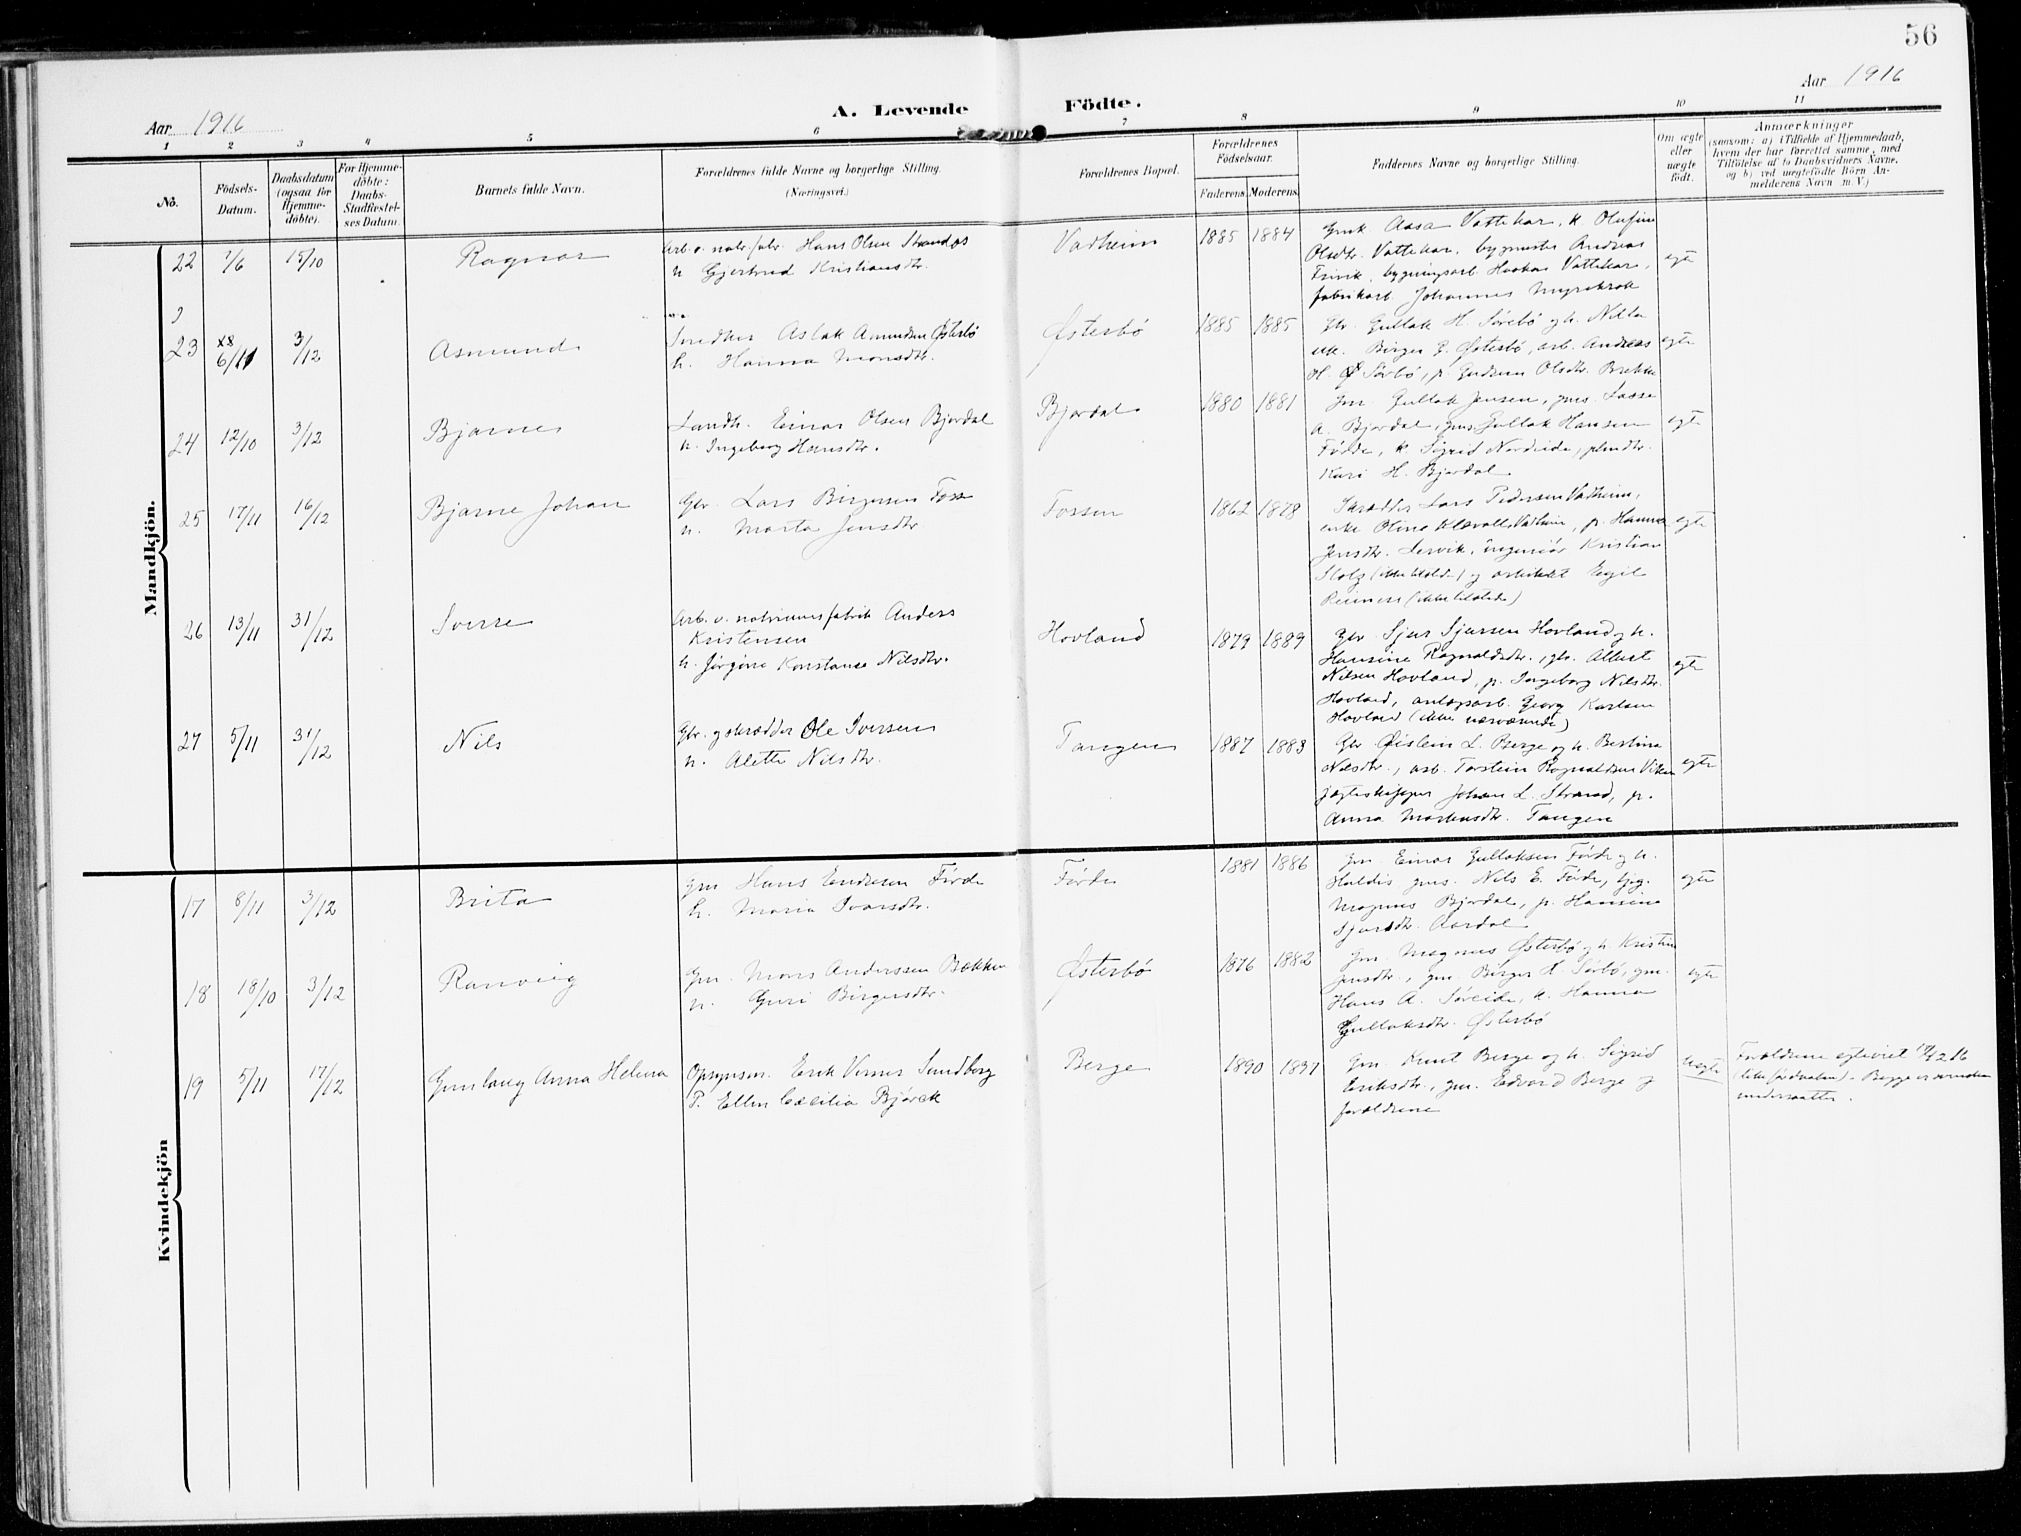 56
Aar 1916
A. Levende Födte.
Aar 1916
1 2 3 4 5 6 7 8 9 10 11
No.
Födsels-Datum.
Daabsdatum (ogsaa for Hjemme-döbte).
For Hjemme-döbte: Daabs-Stadfæstel-ses Datum.
Barnets fulde Navn.
Forældrenes fulde Navne og borgerlige Stilling. (Næringsvei.)
Forældrenes Bopæl.
Forældrenes Födselsaar.
Faderens. Moderens.
Faddernes Navne og borgerlige Stilling.
Om ægte eller uægte födt.
Anmærkninger
(saasom: a) i Tilfælde af Hjemmedaab,
hvem der har forrettet samme, med
Tilföielse af to Daabsvidners Navne,
og b) ved uægtefödte Börn An-
melderens Navn m. V.)
Mandkjön.
22 7/6 15/10 Ragnar
Arb. v. natr.fabr. Hans Olsen Strandos
h. Gjertrud Kristiansdtr.
Vadheim 1885 1884
Gmk Aasa Vattekar, k. Olufine
Olsdtr. Vattekar, bygmester Andreas
bygningsarb. Haakon Vattekar,
fabrikarb. Johannes
egte
23 6/11 3/12 Asmund
Snedker Aslak Amundsen Østerbö
h. Hanna Monsdtr.
Østerbö 1885 1885
Gbr. Gullak H. Sörebö og h.
Birger P. Østerbö, arb. Andreas
H. Ø Sörbö, p. Gudrun Olsdtr. Brekke
egte
24 12/10 3/12 Bjarne
Landh. Einar Olsen Bjordal
h. Ingeborg Hansdtr.
Bjordal 1880 1881
Gm. Gullak Jensen, gms. Lasse
A. Bjordal, gms. Gullak Hansen
Förde, k. Sigrid Nordeide,
Kari H. Bjordal
egte
25 17/11 16/12 Bjarne Johan
Gbr. Lars Birgersen Fosse
h. Marta Jensdtr
Fossen 1862 1878
Skrædder Lars Pedersen Vadheim,
enke Oline Vadheim, p. Hanna
Jensdtr. Servik, ingeniör Kristian
Stolz (ikke tilstede) og arkitekt Egil
Reimers (ikke tilstede)
egte
26 13/11 31/12 Sverre
Arb. v. natriumsfabrik Anders
Kristensen
h. Jörgine Konstanse Nilsdtr.
Hovland 1879 1889
Gbr. Sjur Sjursen Hovland og h.
Hansine Ragnaldsdtr., gbr. Albert
Nilsen Hovland, p. Ingeborg Nilsdtr.
Hovland, anlægsarb. Georg Karlsen
Hovland (ikke nærværende)
egte
27 5/11 31/12 Nils
Gbr. og skrædder Ole Iversen
h. Alette Nilsdtr.
Tangen 1887 1883
Gbr Øistein L. Berge og h. Bertina
Nilsdtr., arb. Torstein Ragnaldsen Viken
jægteskipper Johan L. Strand, p.
Anna Martinsdtr. Tangen
egte
Kvindekjön
17 8/11 3/12 Brita
Gm Hans Endresen Förde
h. Maria Ivarsdtr.
Förde 1881 1886
Gm. Einar Gullaksen Förde og h.
Haldis gms. Nils E. Förde,
Magnus Bjordal, p. Hansina
Sjursdtr. Aardal
egte
18 18/10 3/12 Ranveig
Gm. Mons Anderssen Bækken
h. Guri Birgersdtr.
Østerbö 1876 1882
Gm. Magnus Østerbö og h. Kristin
Jensdtr., gm. Birger H. Sörbö, gm.
Hans A. Söreide, k. Hanna
Gullaksdtr. Østerbö
egte
19 5/11 17/12 Gunlaug Anna Helena
Opsynsm. Erik Verner Sundberg
P. Ellen Cæcilia Björck
Berge 1890 1897
Gm. Knut Berge og h. Sigrid
Eriksdtr., gm. Edvard Berge og
forældrene
uegte
Forældrene egteviet 17/12 16
(like för daaben). Begge er svenske
undersaatter.